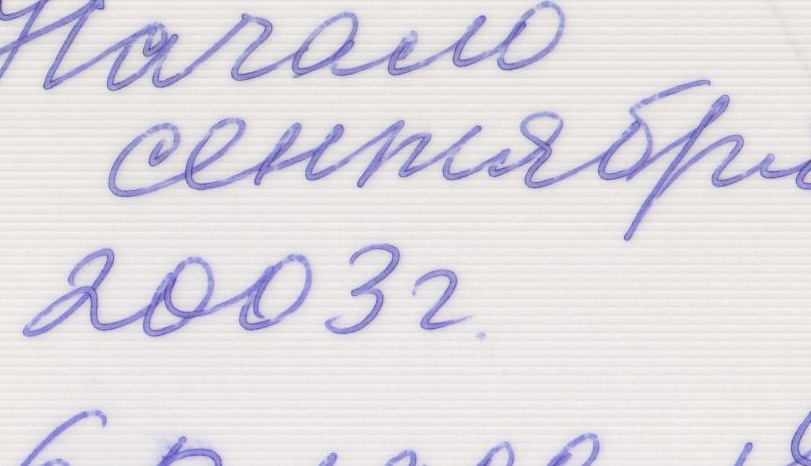 Начало
сентября
2003г.